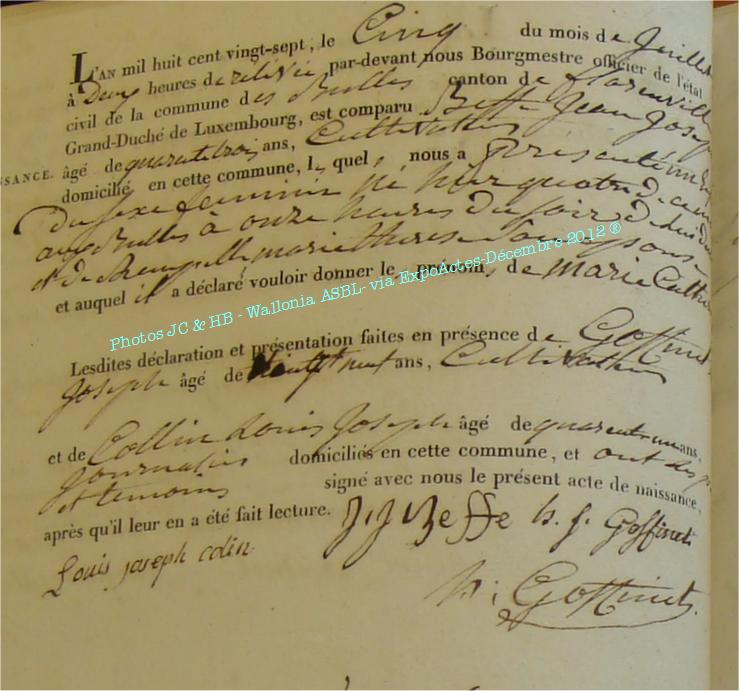 L'AN mil huit cent vingt-sept, le Cinq du mois de Juillet
à Deux heures de relevée par-devant nous Bourgmestre officier de l'état
civil de la commune des Bulles canton de florenville
Grand-Duché de Luxembourg, est comparu Beffe Jean Joseph
SSANCE. âgé de quarante trois ans, Cultivateur
domicilié en cette commune, lequel nous a présenté un
Du sexe féminin né hier quatre de ce mois
aux Bulles à onze heures du soir de lui
et de marie therese son epouse
et auquel il a déclaré vouloir donner le prénoms de marie Catherine
Photos JC & HB - Wallonia ASBL- via ExpoActes-Décembre 2012 ®
Lesdites déclaration et présentation faites en présence de Goffinet
Joseph âgé de neuf ans, Cultivateur
et de Collin Louis Joseph âgé de quarante un ans,
Journalier domiciliés en cette commune, et ont
et temoins signé avec nous le présent acte de naissance,
après qu'il leur en a été fait lecture. J. J. Beffe h. j. Goffinet
Louis joseph colin
Goffinet